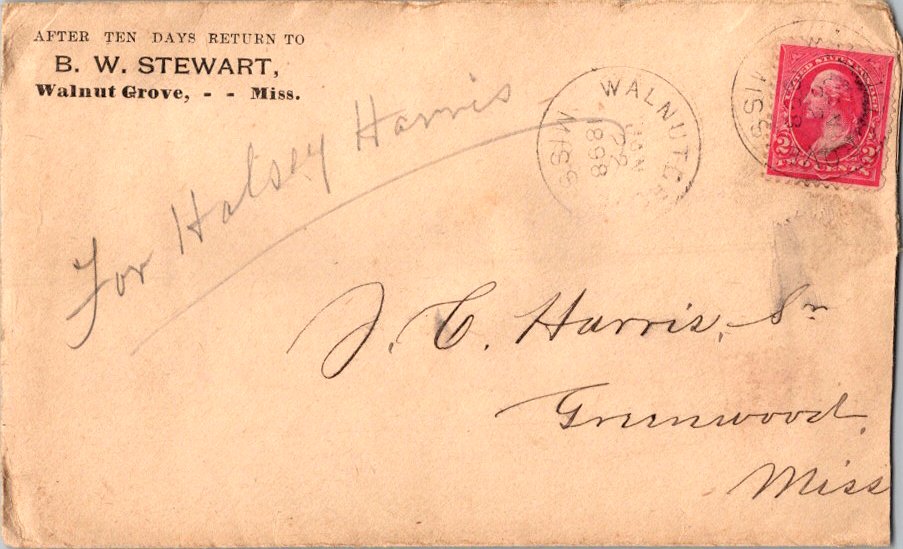 AFTER TEN DAYS RETURN TO
B. W. STEWART,
Walnut Grove, - - Miss.
For Halsey Harris
WALNUT
22
1898
MISS
MISS
UNITED STATES
2 TWO CENTS 2
J. C. Harris, Sr
Greenwood,
Miss